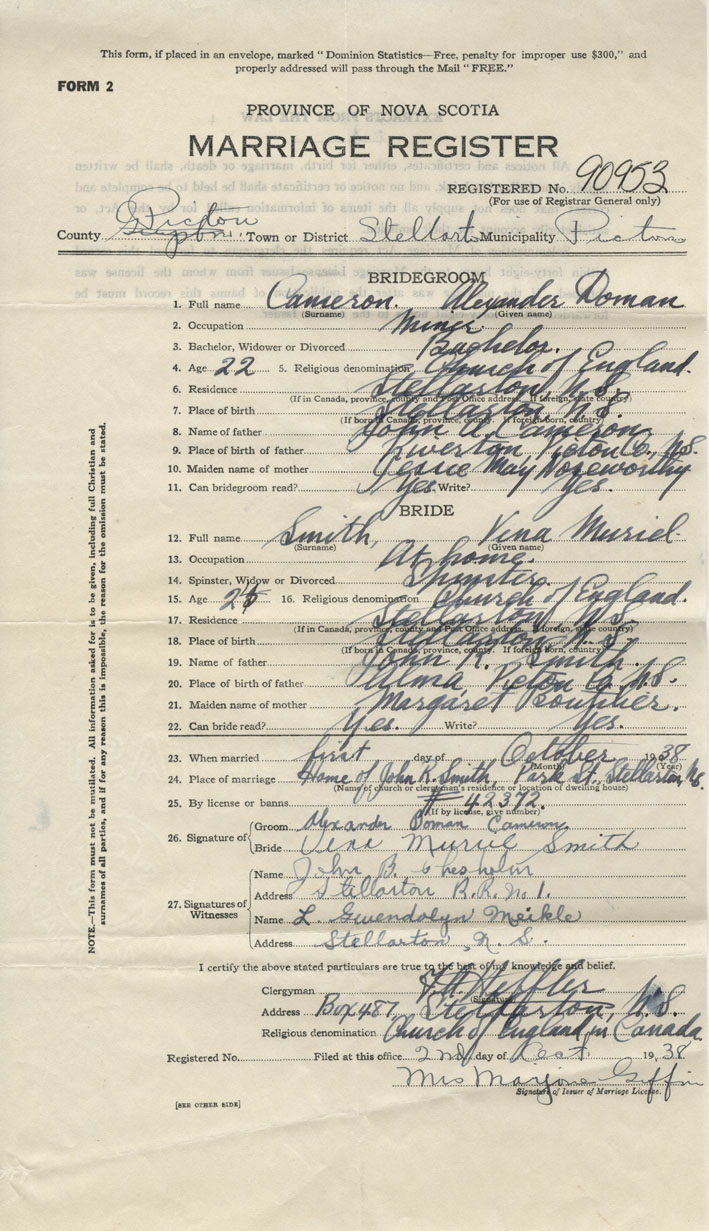 This form, if placed in an envelope, marked "Dominion Statistics—Free, penalty for improper use $300," and
properly addressed will pass through the Mail "FREE."
FORM 2
PROVINCE OF NOVA SCOTIA
MARRIAGE REGISTER
REGISTERED No. 90953
(For use of Registrar General only)
County Pictou Town or District Stellarton Municipality Pictou
BRIDEGROOM
1. Full name Cameron. Alexander Doman
(Surname) (Given name)
2. Occupation Miner
3. Bachelor, Widower or Divorced Bachelor.
4. Age 22 5. Religious denomination Church of England.
6. Residence Stellarton, N.S.
(If in Canada, province, county and Post Office address. If foreign, state country)
7. Place of birth Stellarton N.S.
(If born in Canada, province, county. If foreign born, country)
8. Name of father John A. Cameron
9. Place of birth of father Riverton, Pictou Co., N.S.
10. Maiden name of mother Jessie May Noseworthy
11. Can bridegroom read? Yes. Write? Yes.
BRIDE
12. Full name Smith, Vina Muriel
(Surname) (Given name)
13. Occupation At home.
14. Spinster, Widow or Divorced Spinster.
15. Age 16. Religious denomination Church of England.
17. Residence Stellarton N.S.
(If in Canada, province, county and Post Office address. If foreign, state country)
18. Place of birth Stellarton, N.S.
(If born in Canada, province, county. If foreign born, country)
19. Name of father John K. Smith.
20. Place of birth of father Alma, Pictou Co. N.S.
21. Maiden name of mother Margaret
22. Can bride read? Yes. Write? Yes.
23. When married first day of October 1938
(Month) (Year)
24. Place of marriage Home of John K. Smith, Park St. Stellarton, N.S.
(Name of church or clergyman's residence or location of dwelling house)
25. By license or banns # 42372.
(If by license, give number)
26. Signature of
Groom Alexander Doman Cameron
Bride Vina Muriel Smith
27. Signatures of Witnesses
Name John B. Chesholm
Address Stellarton R.R. N 1.
Name L. Gwendolyn Meikle
Address Stellarton, N.S.
I certify the above stated particulars are true to the best of my knowledge and belief.
Clergyman
(Signature)
Address Box 487 Stellarton, N.S.
Religious denomination Church of England in Canada
Registered No. Filed at this office 2nd day of Oct. 1938
Mrs Marjorie Giffin
Signature of Issuer of Marriage License.
[SEE OTHER SIDE]
NOTE.—This form must not be mutilated. All information asked for is to be given, including full Christian and
surnames of all parties, and if for any reason this is impossible, the reason for the omission must be stated.